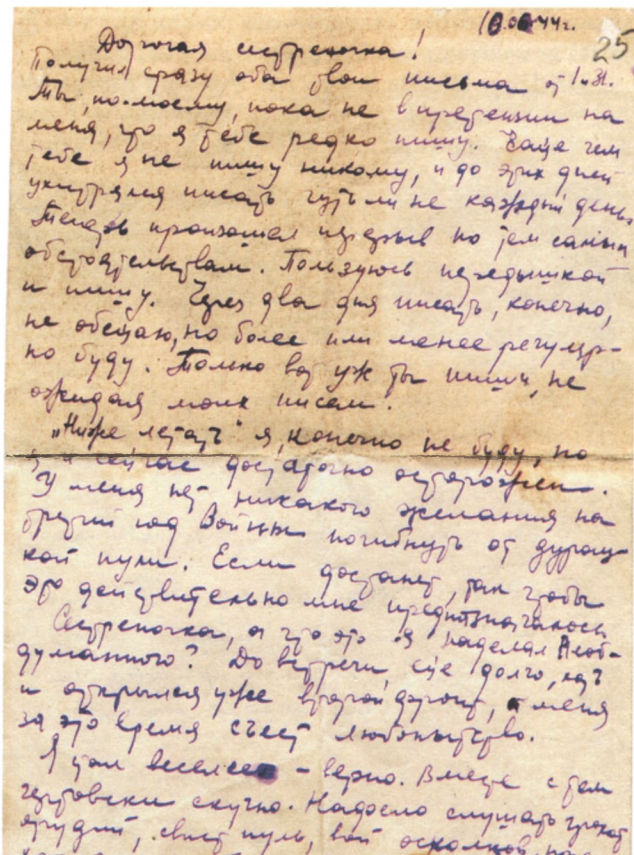 10.06.44г.
25
Дорогая сестреночка!
Получил сразу оба твои письма от 1 и 31.
Ты, по-моему, пока не в претензии на
меня, что я тебе редко пишу. Чаще чем
тебе я не пишу никому, и до этих дней
ухитрялся писать чуть ли не каждый день.
Теперь произошел перерыв по тем самым
обстоятельствам. Пользуюсь передышкой
и пишу. Через два дня писать, конечно,
не обещаю, но более или менее регуляр-
но буду. Только вот уж ты пиши, не
ожидая моих писем.
"Ниже летать" я, конечно не буду, но
я и сейчас достаточно осторожен.
У меня нет никакого желания на
третий год Войны погибнуть от дурац-
кой пули. Если достанет, так чтобы
это действительно мне предназначалось
Сестреночка, а что это я наделал необ-
думанного? До встречи еще долго, хоть
и открылся уже второй фронт, а меня
за это время съест любопытство.
У вас веселее – верно. Вместе с тем
чертовски скучно. Надоело слушать грохот
орудий, свист пуль, вой осколков,